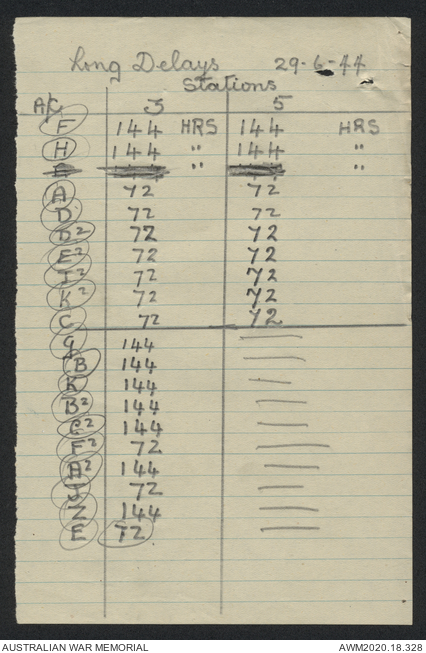 Long Delays 29-6-44
Stations
A/C 3 5
F 144 HRS 144 HRS
H 144 " 144 "
" "
A 72 72
D 72 72
D2 72 72
E2 72 72
I2 72 72
K2 72 72
C 72 72
G 144
B 144
K 144
B2 144
C2 144
F2 72
A2 144
J 72
Z 144
E 72
AUSTRALIAN WAR MEMORIAL AWM2020.18.328